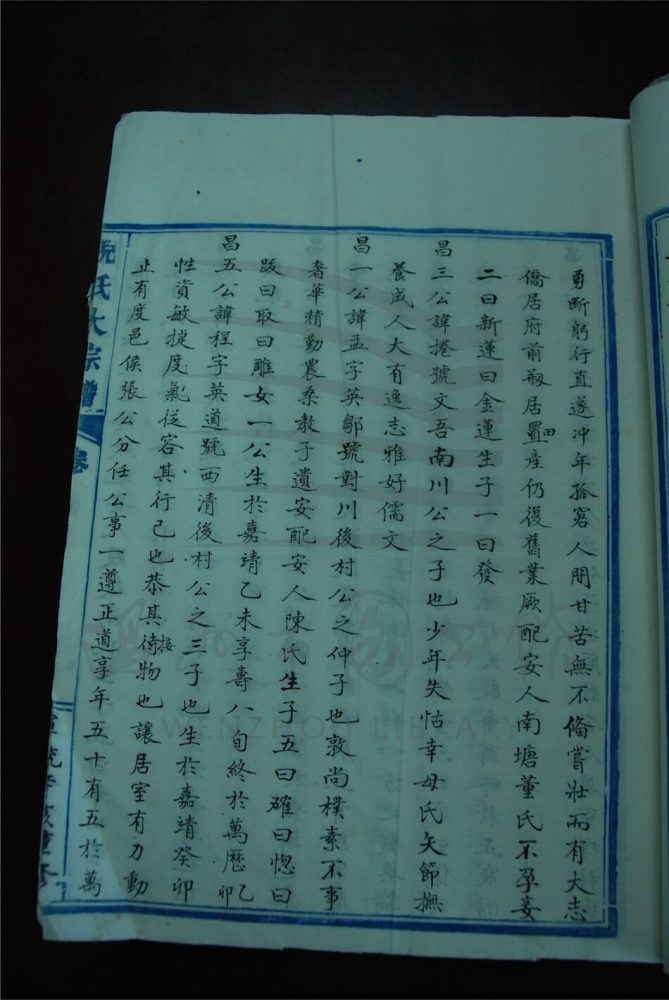 勇斷躬行直遂冲年孤窮人間甘苦無不備嘗壯而有大志
僑居府前剏居置田產仍復舊業厥配安人南塘董氏不孕妾
二曰新蓮曰金蓮生子一曰發
昌三公諱捲號文吾南川公之子也少年失怙幸母氏矢節撫
養成人大有逸志雅好儒文
昌一公諱孟字英鄒號對川後村公之仲子也敦尚樸素不事
奢華精勤農桑教子遺安配安人陳氏生子五曰確曰惚曰
曰取曰雕女一公生於嘉靖乙未享壽八旬終於萬曆乙卯
昌五公諱程字英道號西清後村公之三子也生於嘉靖癸卯
性資敏捷度氣從容其行己也恭其待接物也讓居室有方動
止有度邑侯張公分任公事一遵正道享年五十有五於萬
氏大宗譜
卷
重修
WENZHOU LIBRARY